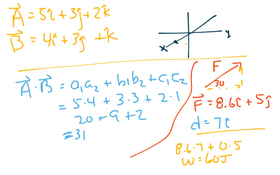 A = 5i + 3j + 2k
B = 4i + 3j + k
x
y
A · B = a₁a₂ + b₁b₂ + c₁c₂
= 5·4 + 3·3 + 2·1
20 + 9 + 2
= 31
F
30
F = 8.6i + 5j
d = 7i
8.6·7 + 0.5
W = 60J